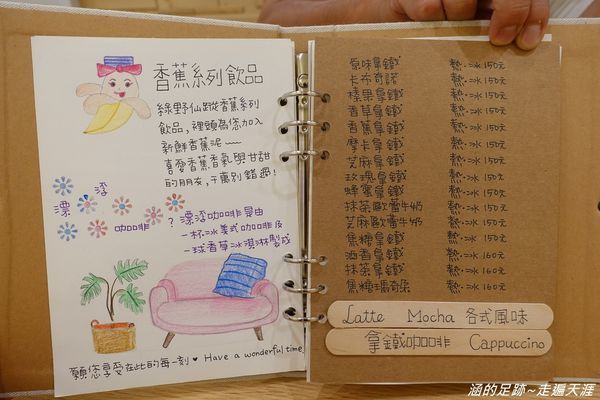 香蕉系列飲品
綠野仙蹤香蕉系列
飲品,裡頭為您加入
新鮮香蕉泥~~
喜愛香蕉香氣與甘甜
的朋友,千萬別錯過!
漂浮咖啡?漂浮咖啡是由
一杯冰美式咖啡及
一球香草冰淇淋製成
願您享受在此的每一刻♥ Have a wonderful time
原味拿鐵 熱·冰150元
卡布奇諾 熱·冰150元
榛果拿鐵 熱·冰150元
香草拿鐵 熱·冰150元
香蕉拿鐵 熱·冰150元
摩卡拿鐵 熱·冰150元
芝麻拿鐵 熱·冰150元
玫瑰拿鐵 熱·冰150元
蜂蜜拿鐵 熱·冰150元
抹茶歐蕾牛奶 熱·冰150元
芝麻歐蕾牛奶 熱·冰150元
焦糖拿鐵 熱·冰150元
酒香拿鐵 熱·冰160元
抹茶拿鐵 熱·冰160元
焦糖瑪奇朵 熱·冰160元
Latte Mocha 各式風味
拿鐵咖啡 Cappuccino
涵的足跡~走遍天涯